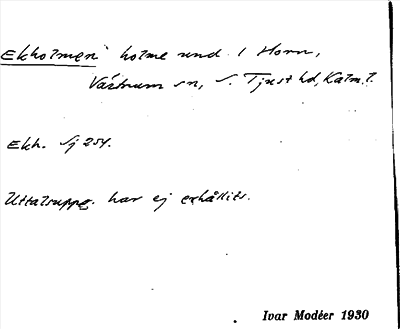 Ekholmen holme und. 1 Horn,
Västrum sn, S. Tjust hd, Kalm. l.
Ekh. Sj 254.
Uttalsuppg. har ej erhållits.
Ivar Modéer 1930